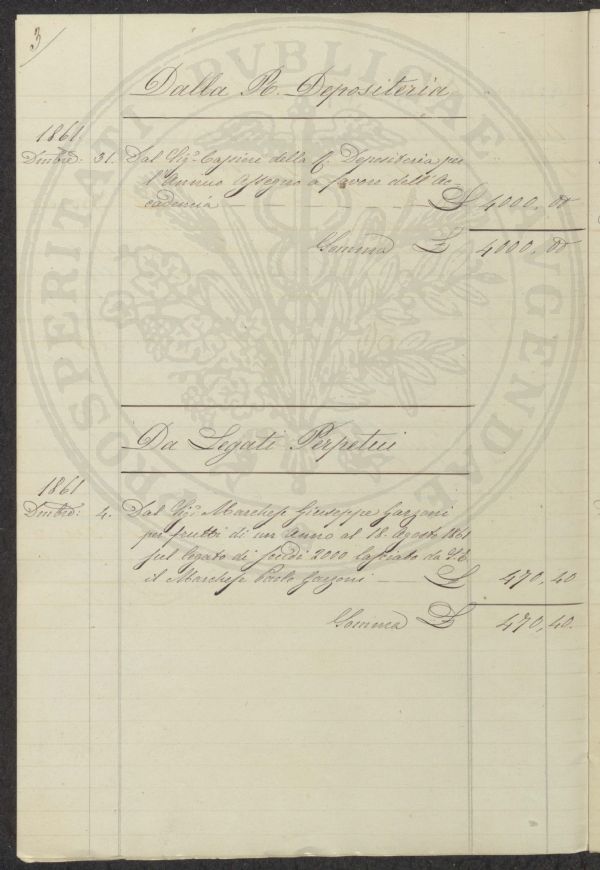 3
Dalla R. Depositeria
1861
Dmbre: 31. Dal Sigr. Cassiere della R. Depositeria per
l'Annuo Assegno a favore dell'Ac-
cademia L 4000,00
Somma L 4000,00
Da Legati Perpetui
1861
Dmbre: 4. Dal Sigr. Marchese Giuseppe Garzoni
per frutti di un anno al 18. Agosto 1861
sul legato di scudi 2000 lasciato da
il Marchese Paolo Garzoni L 470,40
Somma L 470,40.
PROSPERITATI PVBLICAE AVGENDAE